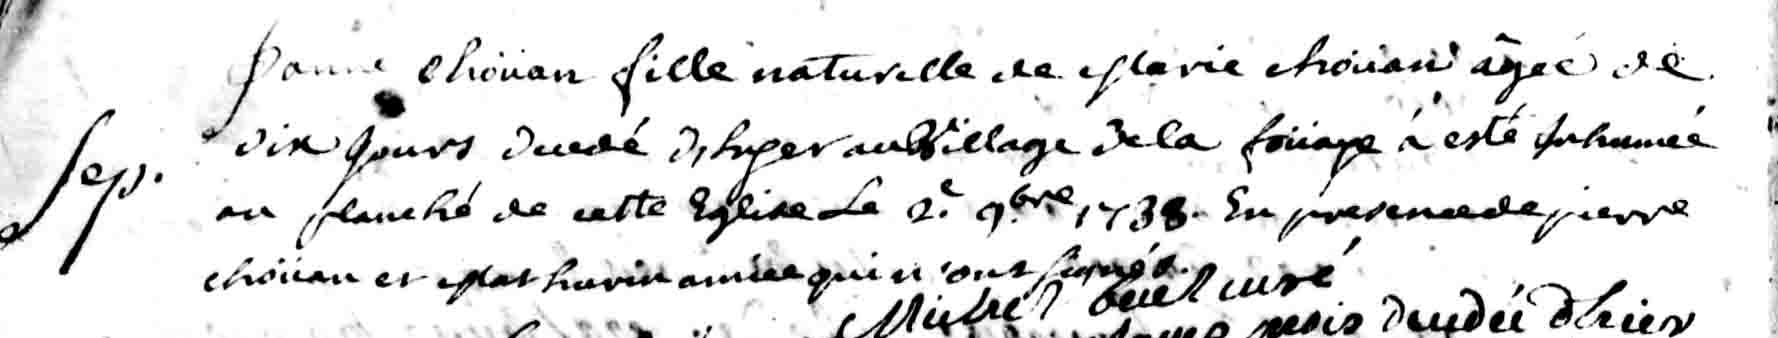 Janne choüan fille naturelle de Marie choüan âgée de
Sep. dix jours decedé d'hyer au Village de la foüaye à esté inhumée
au planché de cette Eglise Le 2.e 9.bre 1738. En presence de pierre
choüan et Mathurin amice qui n'ont signés.
Michel curé
mois decedée d'hier